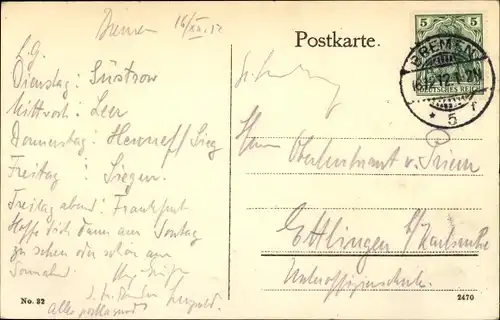 Bremen 16/XII.12
L. G.
Dienstag: Güstrow
Mittwoch: Leer
Donnerstag: Hennef/Sieg
Freitag: Siegen.
Freitag abend: Frankfurt
Hoffe dich dann am Sonntag
zu sehen oder schon am
Sonnabend.
No. 82
Postkarte.
5 5
DEUTSCHES REICH
BREMEN
16.12.12.1-2N
* 5 r
Herrn Oberleutnant von
Ettlingen b/Karlsruhe
Unteroffizierschule.
2470